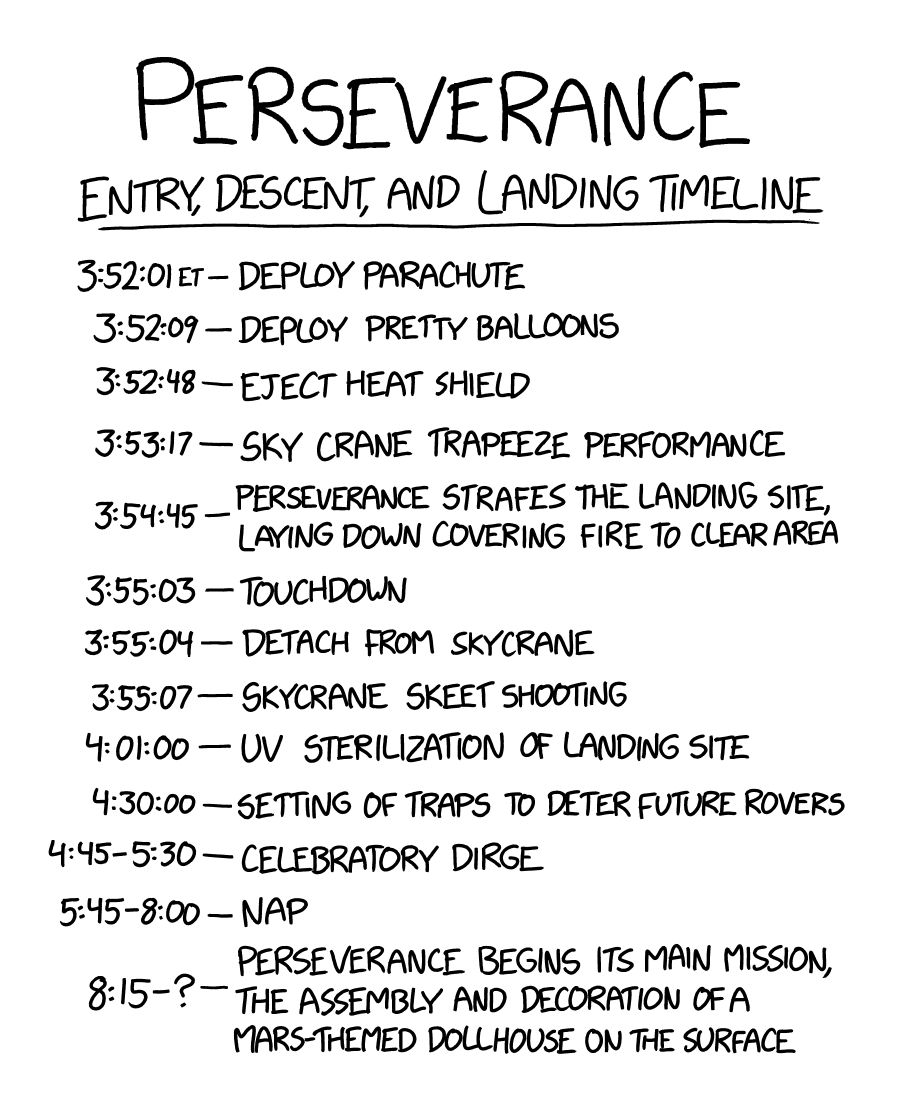 PERSEVERANCE
ENTRY, DESCENT, AND LANDING TIMELINE
3:52:01 ET — DEPLOY PARACHUTE
3:52:09 — DEPLOY PRETTY BALLOONS
3:52:48 — EJECT HEAT SHIELD
3:53:17 — SKY CRANE TRAPEEZE PERFORMANCE
3:54:45 — PERSEVERANCE STRAFES THE LANDING SITE,
LAYING DOWN COVERING FIRE TO CLEAR AREA
3:55:03 — TOUCHDOWN
3:55:04 — DETACH FROM SKYCRANE
3:55:07 — SKYCRANE SKEET SHOOTING
4:01:00 — UV STERILIZATION OF LANDING SITE
4:30:00 — SETTING OF TRAPS TO DETER FUTURE ROVERS
4:45-5:30 — CELEBRATORY DIRGE
5:45-8:00 — NAP
8:15-? — PERSEVERANCE BEGINS ITS MAIN MISSION,
THE ASSEMBLY AND DECORATION OF A
MARS-THEMED DOLLHOUSE ON THE SURFACE